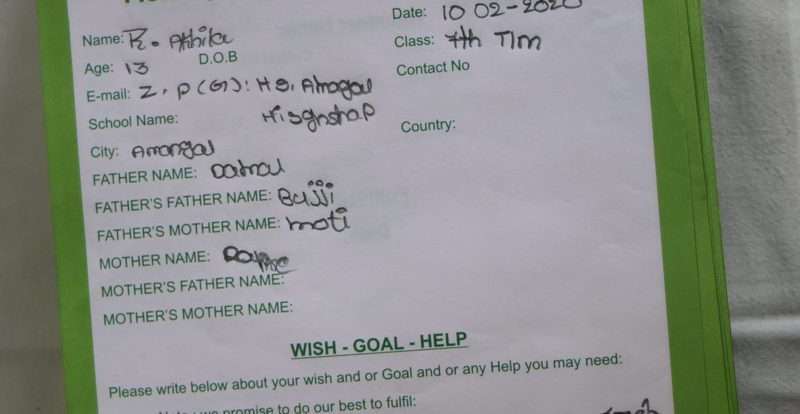 Date: 10 02-2020
Name: R. Athika
Class: 7th TIm
Age: 13 D.O.B
Contact No
E-mail: Z. P (G): HS. Amagal
School Name: Highshap
Country:
City: Amangal
FATHER NAME:
FATHER'S FATHER NAME: Bujji
FATHER'S MOTHER NAME: moti
MOTHER NAME:
MOTHER'S FATHER NAME:
MOTHER'S MOTHER NAME:
WISH - GOAL - HELP
Please write below about your wish and or Goal and or any Help you may need:
we promise to do our best to fulfil: